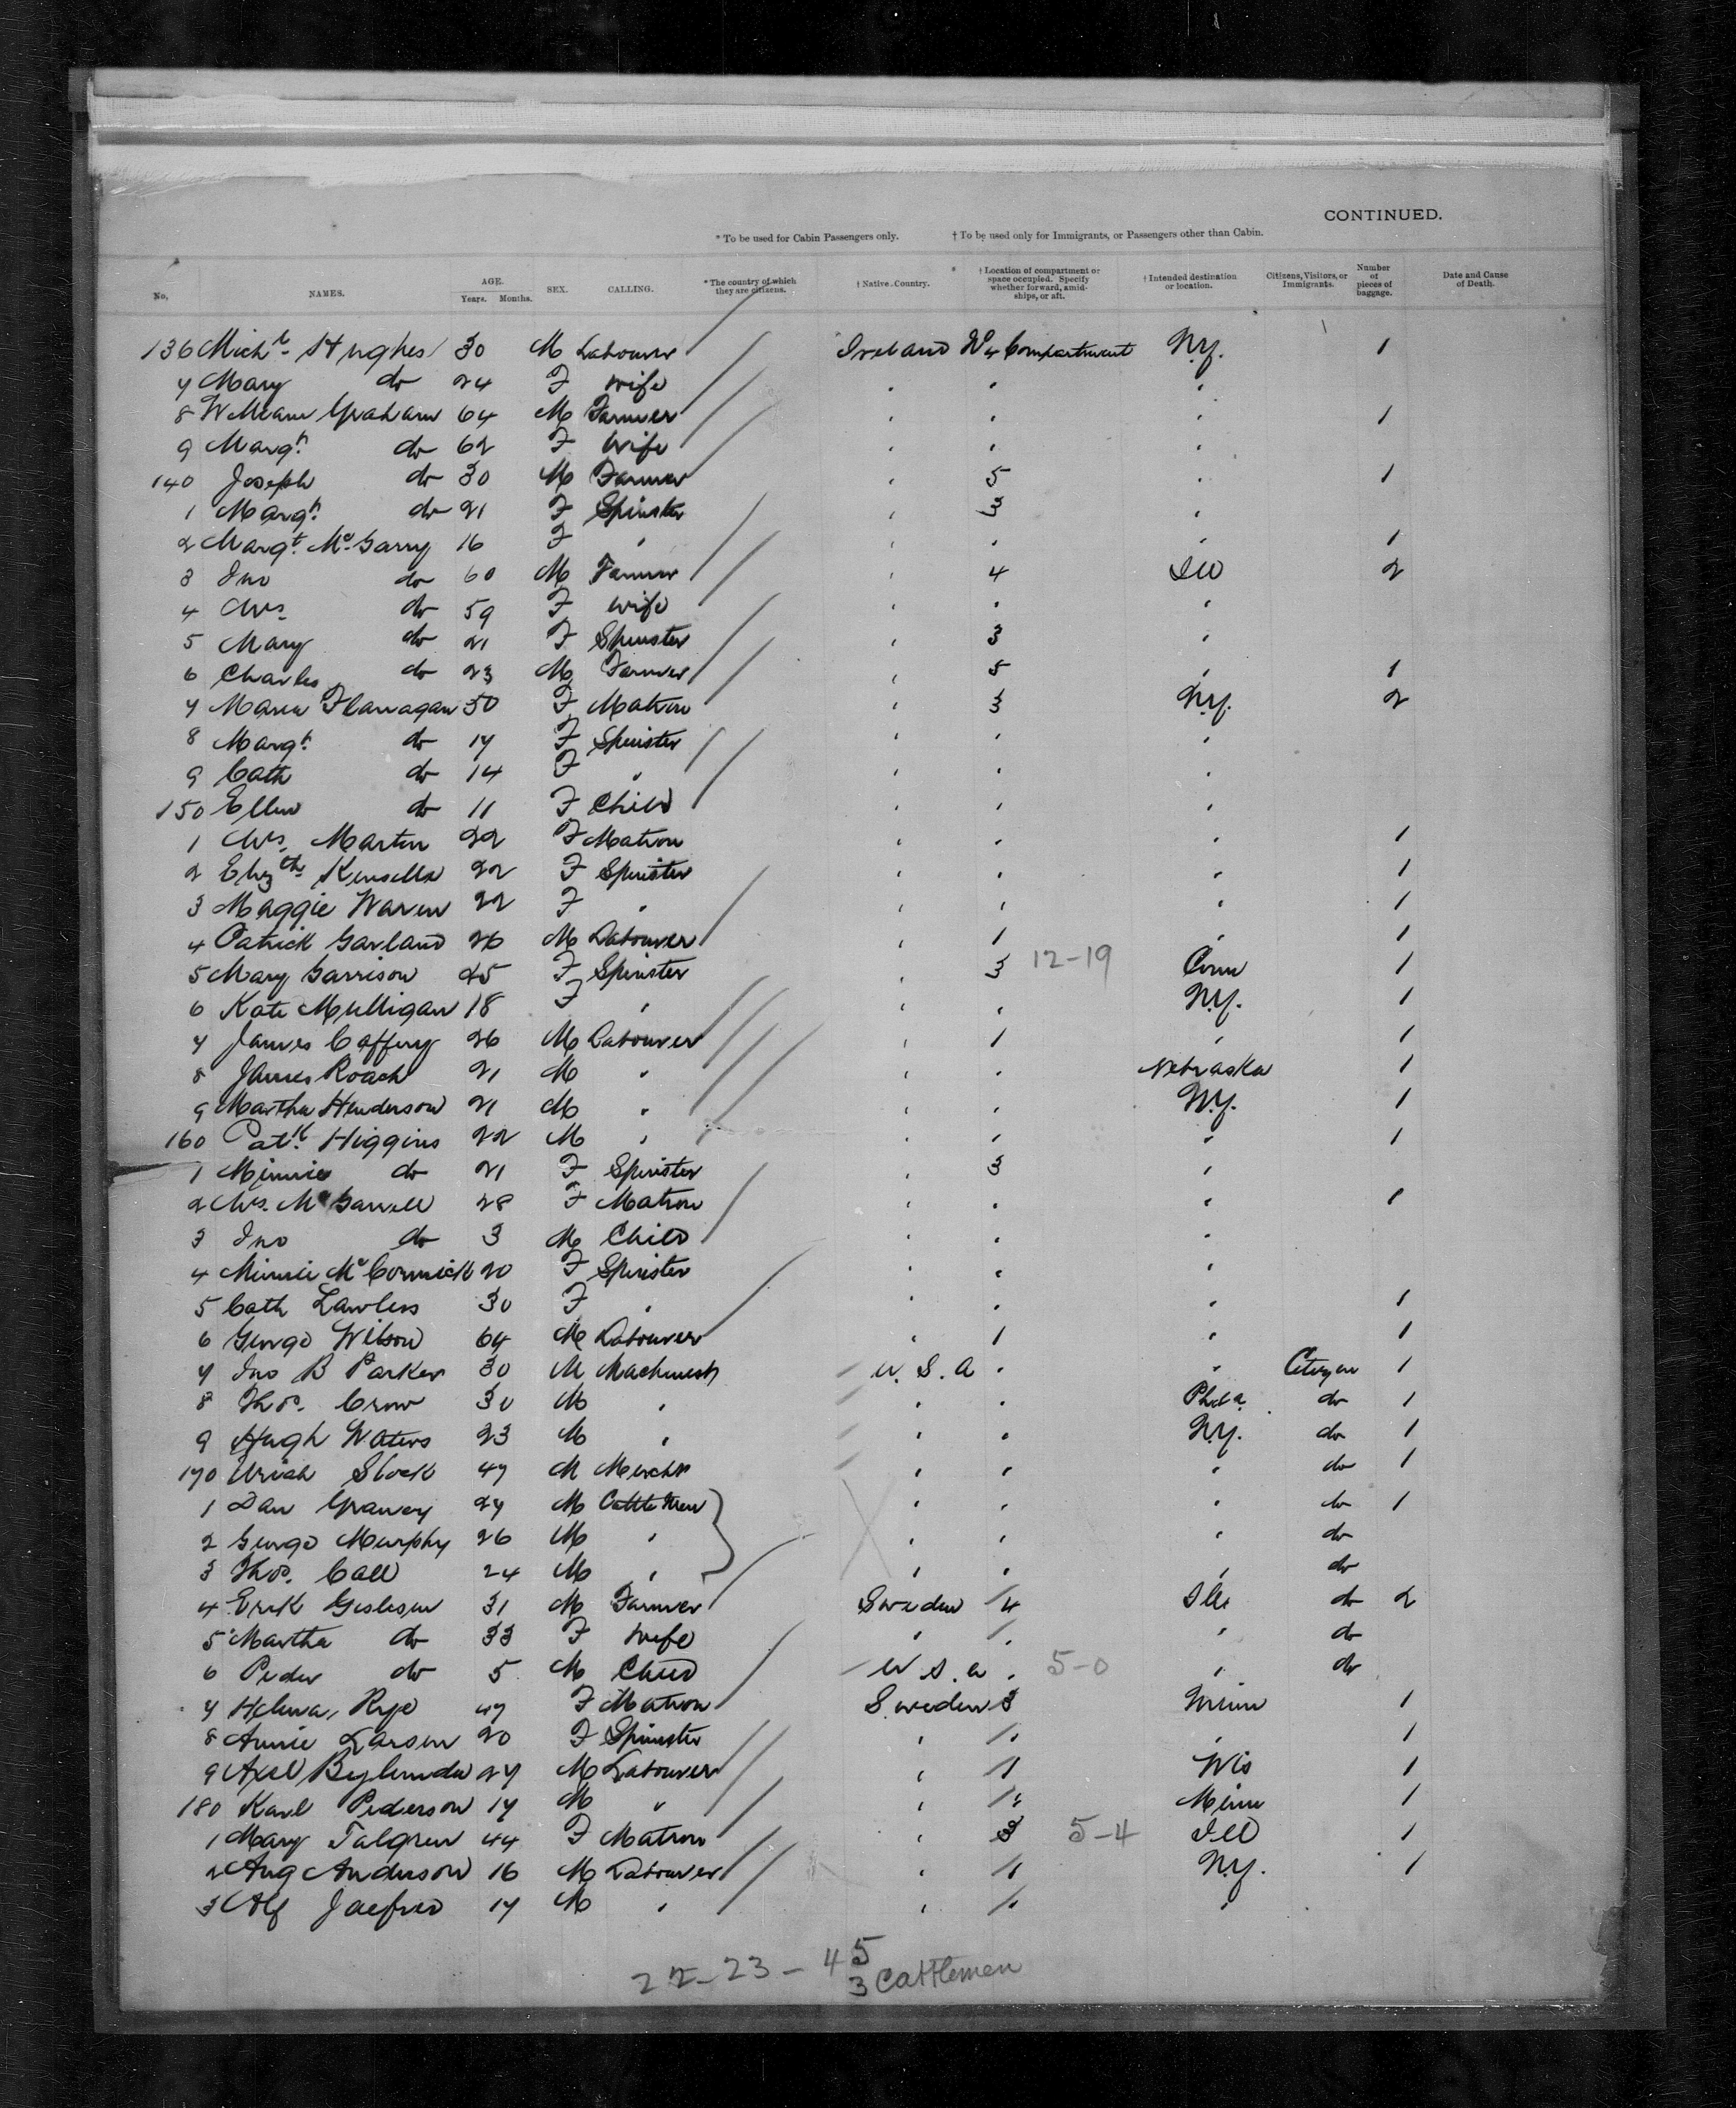 CONTINUED.
* To be used for Cabin Passengers only. † To be used only for Immigrants, or Passengers other than Cabin.
No. NAMES. AGE. Years. Months. SEX. CALLING. * The country of which they are citizens. † Native Country. † Location of compartment or space occupied. Specify whether forward, amidships, or aft. † Intended destination or location. Citizens, Visitors, or Immigrants. Number of pieces of baggage. Date and Cause of Death.
136 Michl. Hughes 30 M Labourer Ireland No 4 Compartment N.Y. 1
7 Mary do 24 F Wife " " "
8 William Graham 64 M Farmer " " " 1
9 Margt. do 62 F Wife " " "
140 Joseph do 30 M Farmer " 5 " 1
1 Margt. do 21 F Spinster " 3 "
2 Margt. McGarry 16 F " " " " 1
3 Jno do 60 M Farmer " 4 Ill 2
4 Mrs. do 59 F Wife " " "
5 Mary do 21 F Spinster " 3 "
6 Charles do 23 M Farmer " 5 " 1
7 Maria Flanagan 50 F Matron " 3 N.Y. 2
8 Margt. do 17 F Spinster " " "
9 Cath do 14 F " " " "
150 Ellen do 11 F Child " " "
1 Mrs. Martin 22 F Matron " " " 1
2 Elizth Kinsella 22 F Spinster " " " 1
3 Maggie Waren 22 F " " " " 1
4 Patrick Garland 26 M Labourer " 1 " 1
5 Mary Garrison 45 F Spinster " 3 12-19 Conn 1
6 Kate Mulligan 18 F " " " N.Y. 1
7 James Caffery 26 M Labourer " 1 " 1
8 James Roach 21 M " " " Nebraska 1
9 Martha Henderson 21 M " " " N.Y. 1
160 Patk. Higgins 22 M " " " " 1
1 Minnie do 21 F Spinster " 3 "
2 Mrs. McGarrell 28 F Matron " " " 1
3 Jno do 3 M Child " " "
4 Minnie McCormick 20 F Spinster " " "
5 Cath Lawless 30 F " " " " 1
6 George Wilson 64 M Labourer " 1 " 1
7 Jno B Parker 30 M Machinest U.S.A " " Citizen 1
8 Thos. Crow 30 M " " " Phila. do 1
9 Hugh Waters 23 M " " " N.Y. do 1
170 Uriah Stock 47 M Mercht " " " do 1
1 Dan 27 M Cattle Men " " " do 1
2 George Murphy 26 M " " " " do
3 Thos. Call 24 M " " " " do
4 Erik Gislesen 31 M Farmer Sweden 4 Ills do 2
5 Martha do 33 F Wife " " " do
6 Peder do 5 M Child U.S.A. " 5-0 " do
7 Helena Rye 47 F Matron Sweden 3 Minn 1
8 Annie Larsen 20 F Spinster " " " 1
9 Axel 27 M Labourer " 1 Wis 1
180 Karl Pederson 17 M " " " Minn 1
1 Mary Talgren 44 F Matron " 3 5-4 Ill 1
2 Aug Anderson 16 M Labourer " 1 N.Y. 1
3 Alf 17 M " " " "
22-23-45
3 Cattlemen